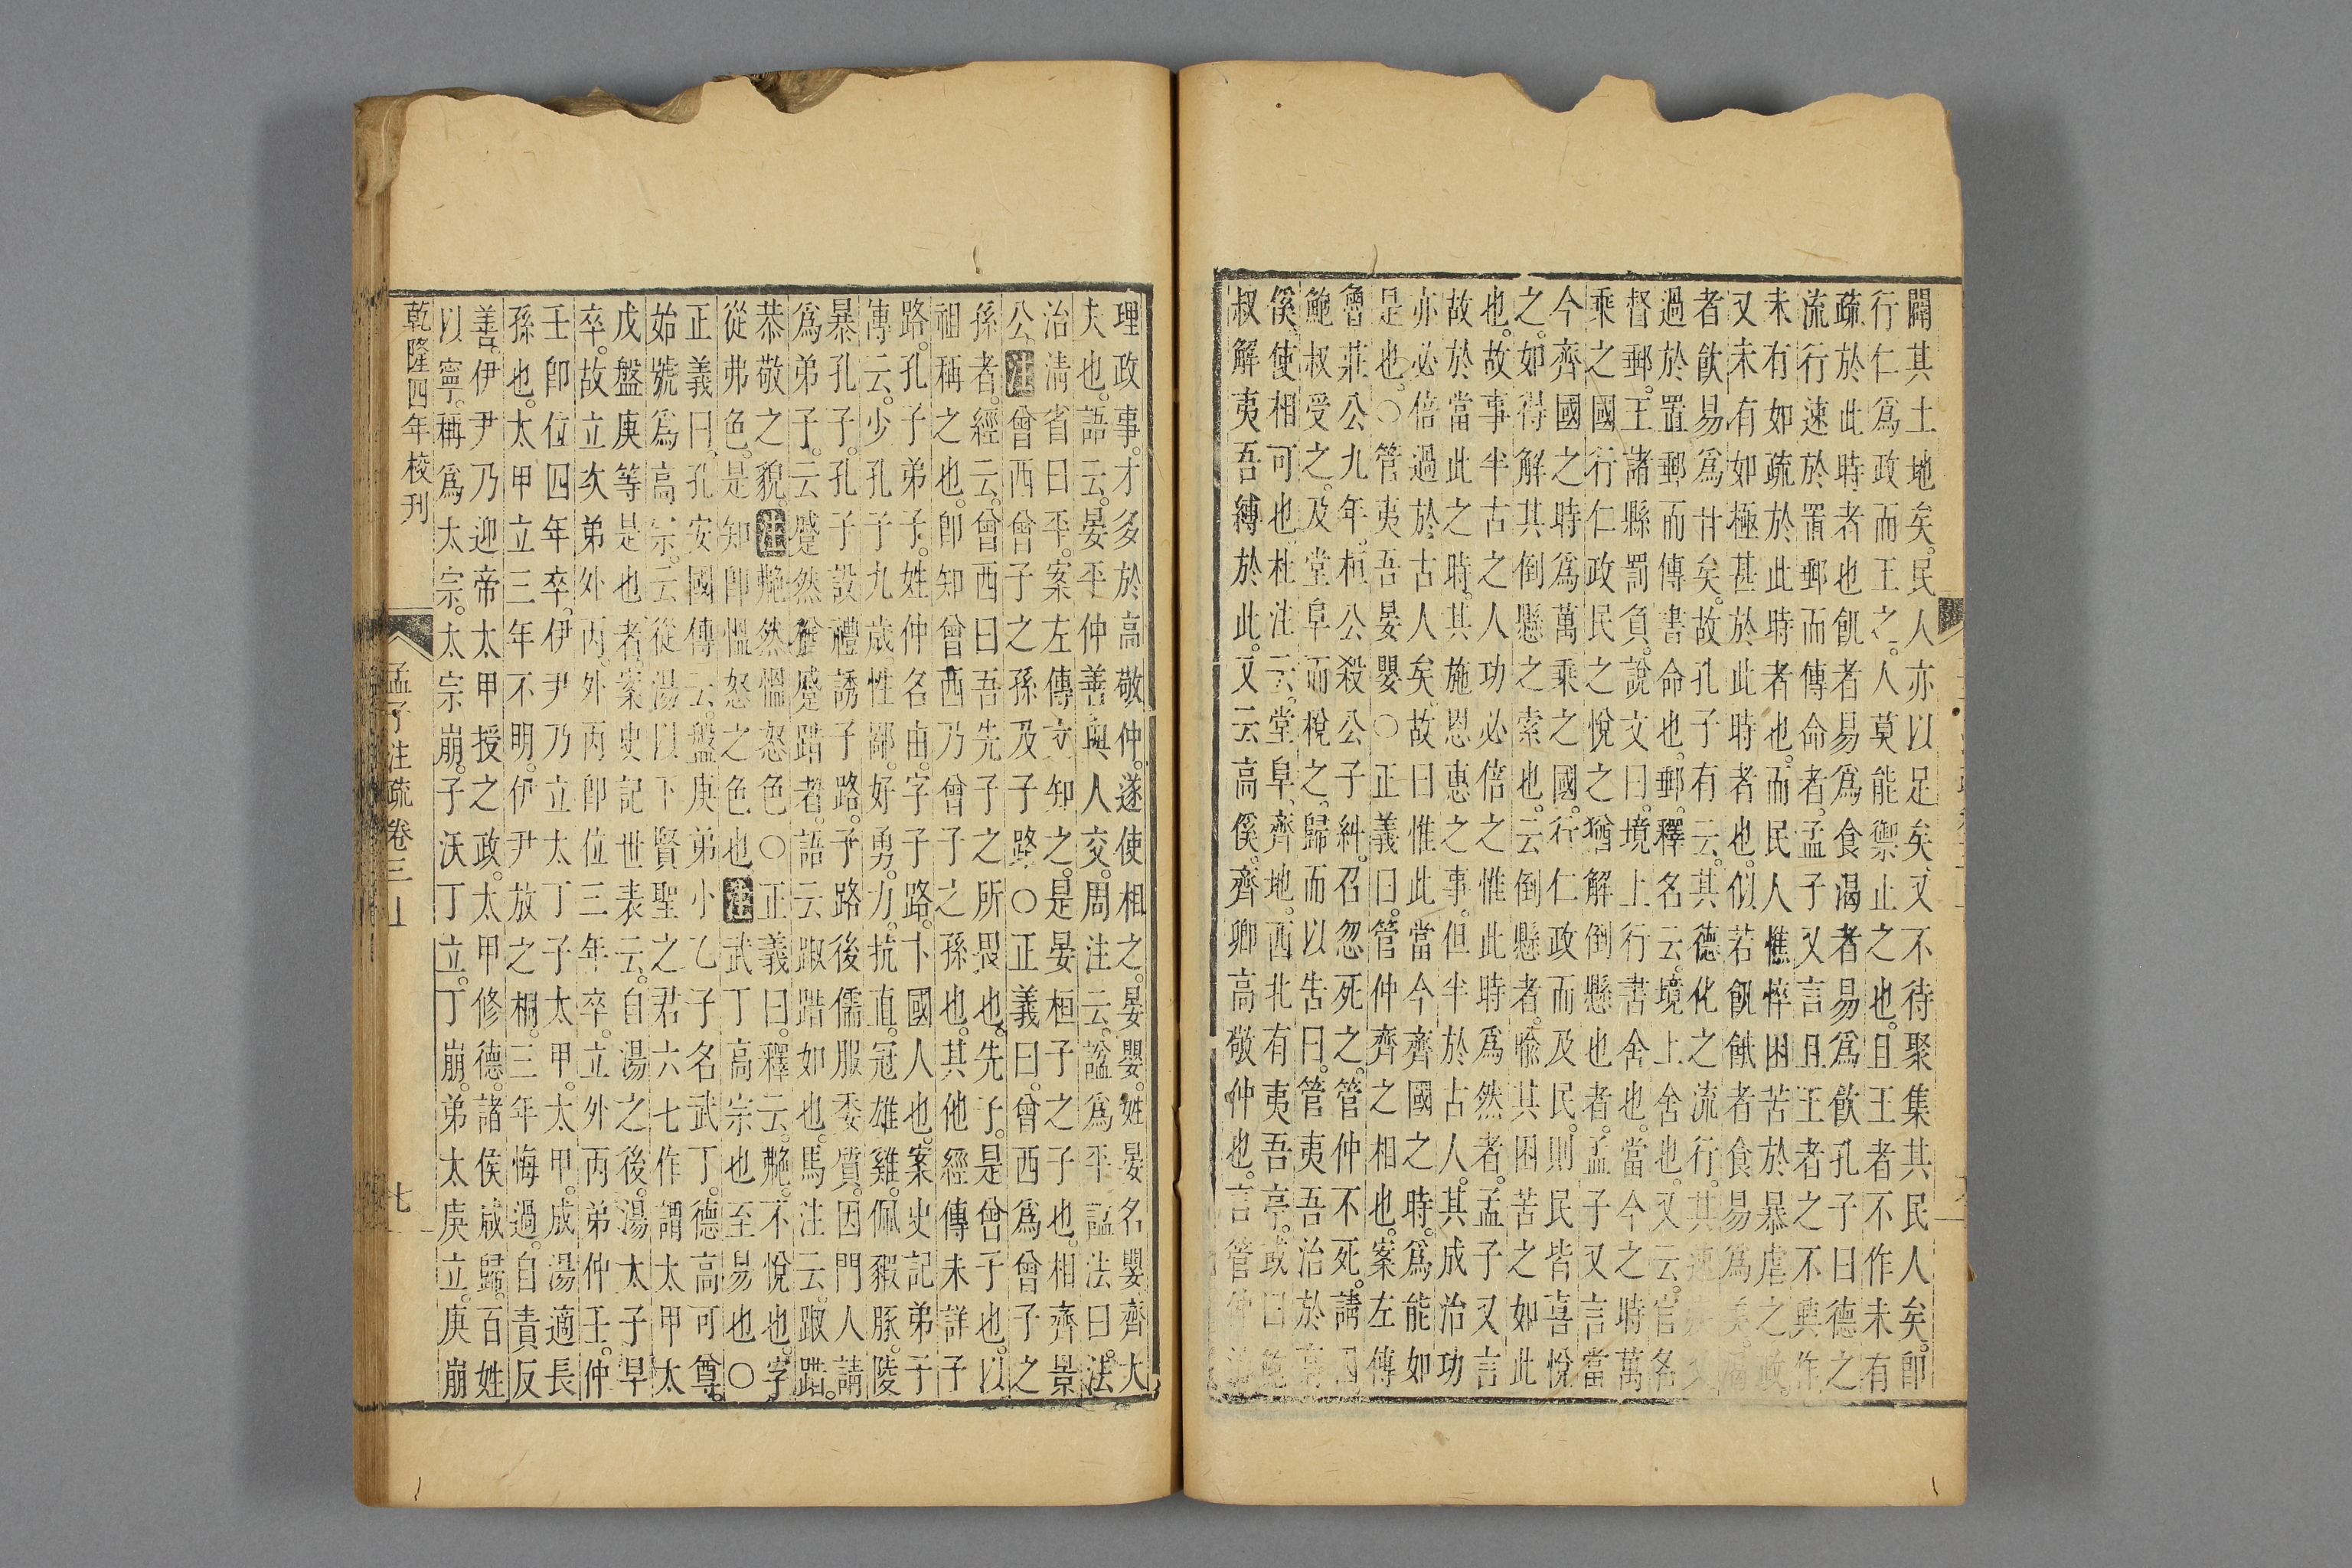 闢其土地矣。民人亦以足矣。又不待聚集其民人矣。卽
行仁爲政而王之。人莫能禦止之也。且王者不作未有
疏於此時者也飢者易爲食渴者易爲飲孔子曰德之
流行速於置郵而傳命者。孟子又言且王者之不興作
未有如疏於此時者也。而民人憔悴困苦於暴虐之政。
又未有如極甚於此時者也。似若飢餓者食易爲美。渴
者飲易爲甘矣。故孔子有云。其德化之流行。其速疾又
過於置郵而傳書命也。郵。釋名云。境上舍也。又云。官名
督郵。王諸縣罰負。說文曰。境上行書舍也。當今之時萬
乘之國行仁政民之悅之猶解倒懸也者。孟子又言當
今齊國之時爲萬乘之國。行仁政而及民。則民皆喜悅
之。如得解其倒懸之索也。云倒懸者。喻其困苦之如此
也。故事半古之人功必倍之惟此時爲然者。孟子又言
故於當此之時。其施恩惠之事。但半於古人。其成治功
亦必倍過於古人矣。故曰惟此當今齊國之時。爲能如
是也。○管夷吾晏嬰○正義曰。管仲齊之相也。案左傳
魯莊公九年。桓公殺公子糾。召忽死之。管仲不死。請囚
鮑叔受之。及堂阜而稅之。歸而以告曰。管夷吾治於高
傒。使相可也。杜注云。堂阜。齊地。西北有夷吾亭。或曰鮑
叔解夷吾縛於此。又云高傒。齊卿高敬仲也。言管仲治
理政事。才多於高敬仲。遂使相之。晏嬰。姓晏名嬰齊大
夫也。語云。晏平仲善與人交。周注云。諡爲平。諡法曰。法
治清省曰平。案左傳文知之。是晏桓子之子也。相齊景
公。注曾西曾子之孫及子路○正義曰。曾西爲曾子之
孫者。經云。曾西曰吾先子之所畏也。先子。是曾子也。以
祖稱之也。卽知曾西乃曾子之孫也。其他經傳未詳子
路。孔子弟子。姓仲名由。字子路。卞國人也。案史記弟子
傳云。少孔子九歲。性鄙。好勇。力。抗直。冠雄雞。佩豭豚。陵
暴孔子。孔子設禮誘子路。子路後儒服委質。因門人請
爲弟子。云蹙然猶蹙踖者。語云踧踖如也。馬注云。踧踖。
恭敬之貌注艴然慍怒色○正義曰。釋云。艴。不悅也。字
從弗色。是知卽慍怒之色也注武丁高宗也至易也○
正義曰。孔安國傳云。盤庚弟小乙子名武丁。德高可尊。
始號爲高宗。云從湯以下賢聖之君六七作謂太甲太
戊盤庚等是也者。案史記世表云。自湯之後。湯太子早
卒。故立次弟外丙。外丙卽位三年卒。立外丙弟仲壬。仲
壬卽位四年卒。伊尹乃立太丁子太甲。太甲。成湯適長
孫也。太甲立三年不明。伊尹放之桐。三年悔過。自責反
善。伊尹乃迎帝太甲授之政。太甲修德。諸侯咸歸。百姓
以寧。稱爲太宗。太宗崩。子沃丁立。丁崩。弟太庚立。庚崩
乾隆四年校刊
孟子注疏卷三上
七